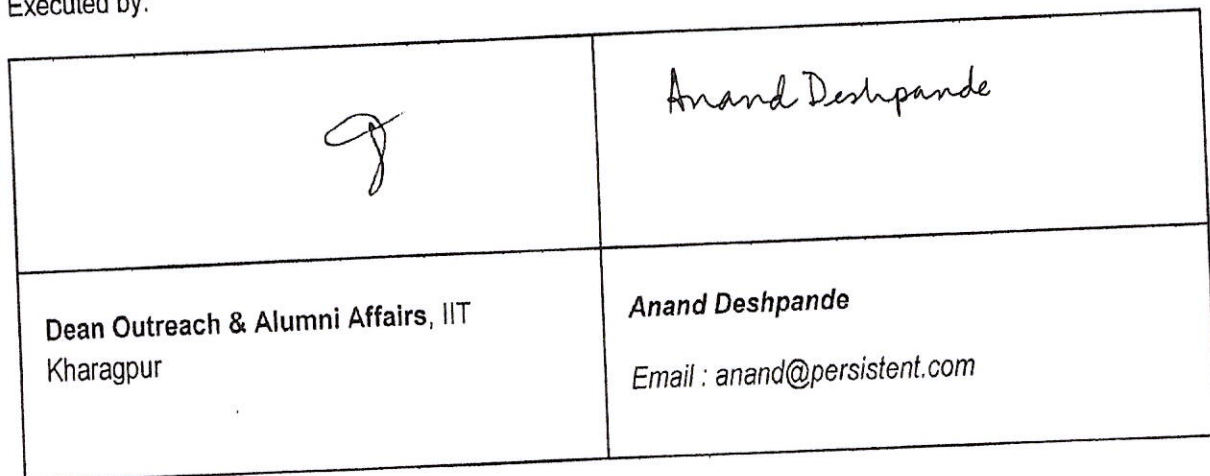 Executed by:
Anand Deshpande
Dean Outreach & Alumni Affairs, IIT
Kharagpur
Anand Deshpande
Email : anand@persistent.com